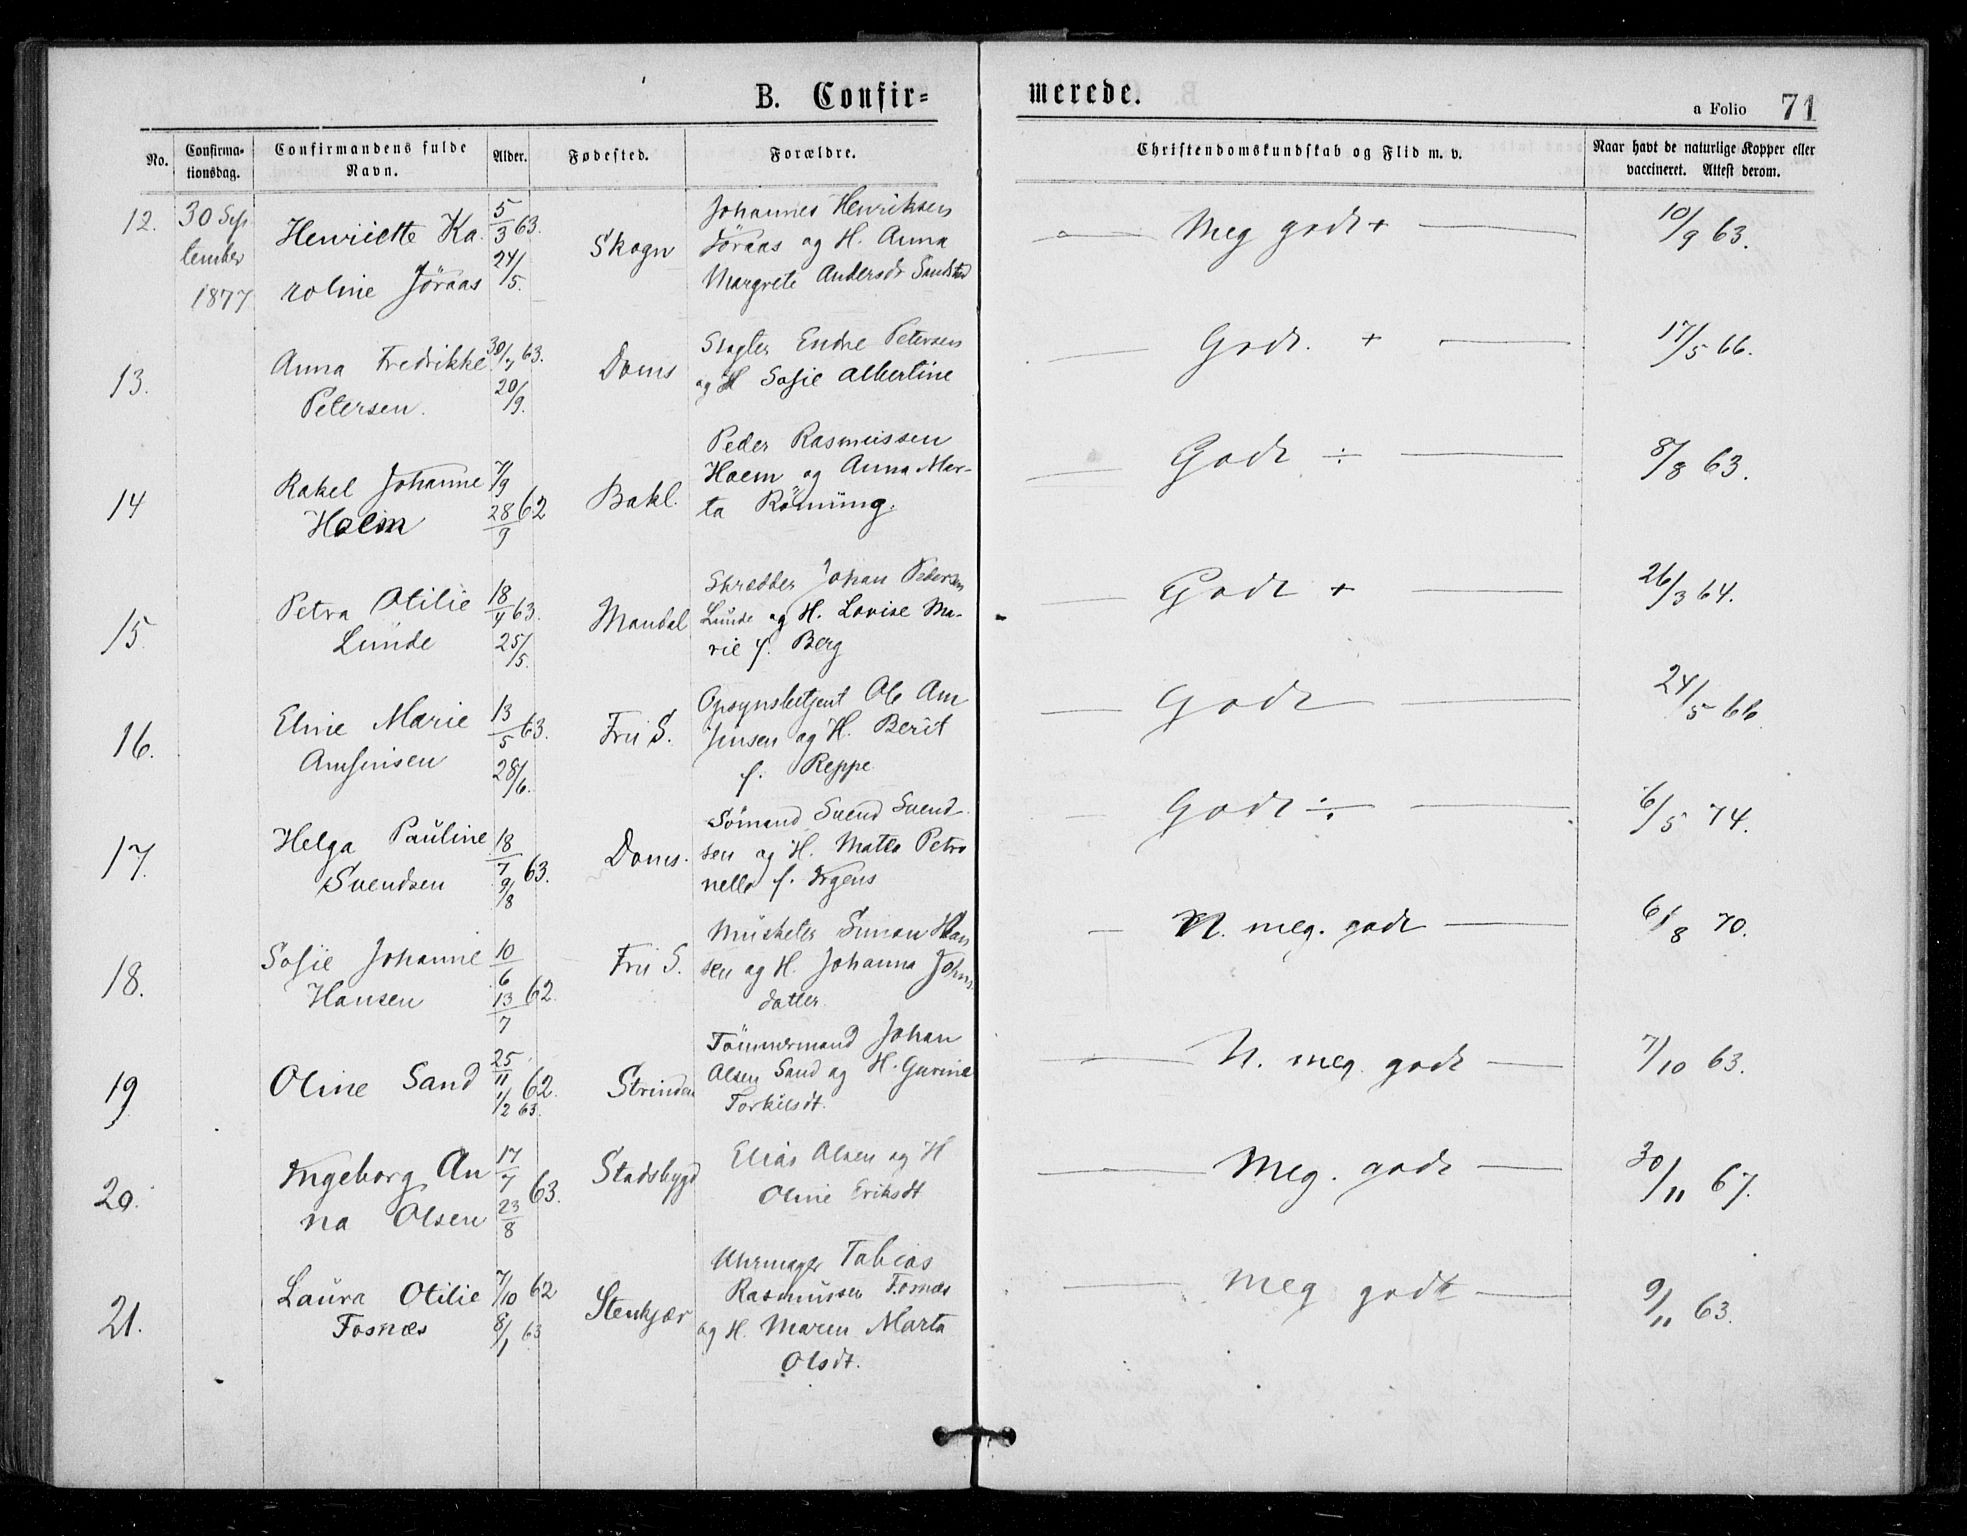 B. Confir=
merede.
a Folio 71
No.
Confirma-
tionsdag.
Confirmandens fulde
Navn.
Alder.
Fødested.
Forældre.
Christendomskundskab og Flid m. v.
Naar havt de naturlige Kopper eller
vaccineret. Attest derom.
12. 30 Sep
tember
1877
Henriette Ka
roline Jøraas
5/3 63.
24/5.
Skogn
Johannes Henriksen
Jøraas og H. Anna
Margrete Andersdr Sandstad
Meg godt +
10/9 63.
13.
Anna Fredrikke
Petersen.
30/7 63.
20/9.
Doms
Slagter Endre Petersen
og H Sofie Albertine
Godt. +
17/5 66.
14
Rakel Johanne
Holm
7/9
28/9 62
Bakl.
Peder Rasmussen
Holm og Anna Mar-
ta Rönning.
Godt ÷
8/8 63.
15.
Petra Otilie
Lunde
18/4 63.
25/5.
Mandal
Skredder Johan Pedersen
Lunde og H. Lovise Ma-
rie f. Berg
Godt +
26/3 64.
16.
Eline Marie
Amjensen
13/5 63.
28/6.
Fru S.
Opsynsbetjent Ole Am
jensen og H. Berit
f. Reppe
Godt
24/5 66.
17.
Helga Pauline
Svendsen
18/7 63.
9/8
Doms.
Sømand Svend Svend
sen og H. Matea Petro
nella f. Irgens
Godt ÷
6/5 74.
18.
Sofie Johanne
Hansen
10/6
13/7 62.
Fru S.
Musketer Simon Han
sen og H. Johanna Johns
datter.
N. meg. godt
6/8 70.
19
Oline Sand
25/11 62.
1/2 63.
Strinden
Tömmermand Johan
Olsen Sand og H. Gurine
Torkilsdt.
N. meg. godt
7/10 63.
20.
Ingeborg An
na Olsen
17/7
23/8 63.
Stadsbygd
Elias Olsen og H
Oline Eriksdt
Meg. godt
30/11 67.
21.
Laura Otilie
Fosnæs
7/10 62
8/1 63
Stenkjær
Uhrmager Tobias
Rasmussen Fosnæs
og H. Maren Marta
Olsdt.
Meg godt
9/11 63.